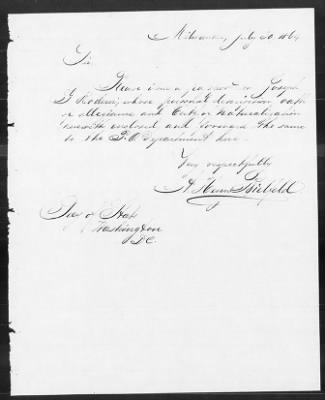 Milwaukee, July 20 1864
Sir
Please issue a passport to Joseph
G. whose personal description oath
of allegiance and Cert. of Naturalization
herewith enclosed and forward the same
to the P.O. Department here.
Very respectfully
A. Henry
Sec. of State
Washington
D.C.